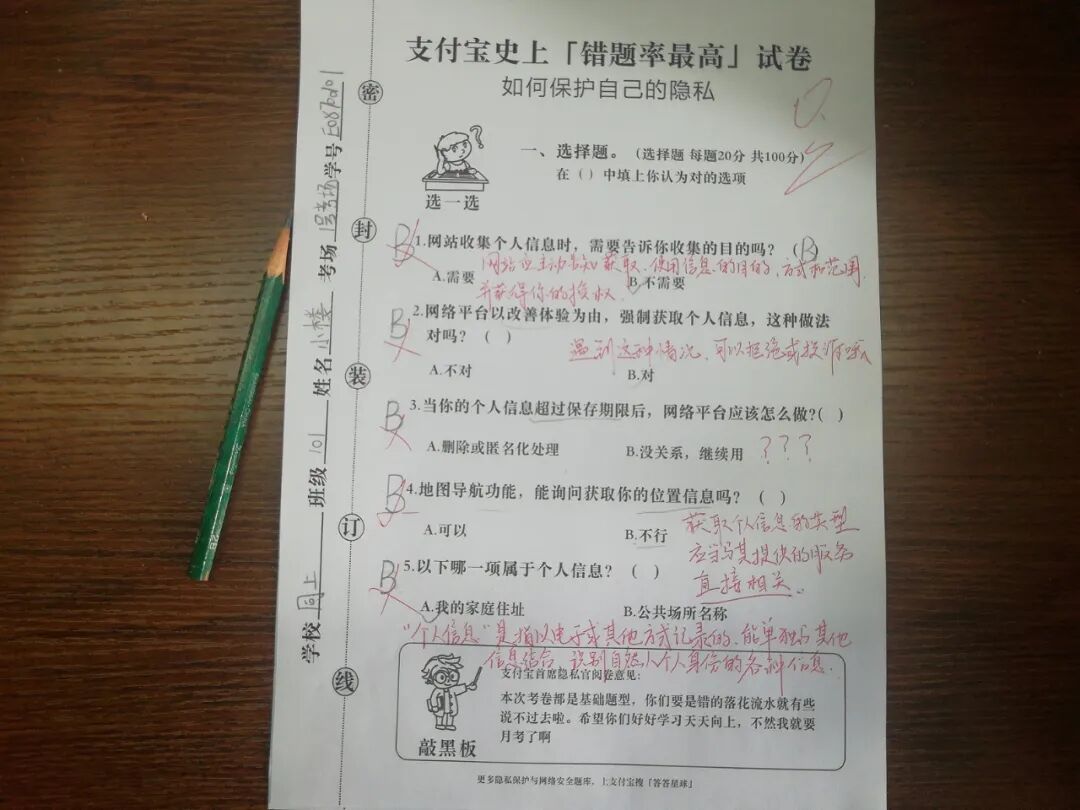 支付宝史上「错题率最高」试卷
如何保护自己的隐私
0分
一、选择题。（选择题 每题20分 共100分）
在（）中填上你认为对的选项
选一选
B 1.网站收集个人信息时，需要告诉你收集的目的吗？（B）
网站应主动告知获取、使用信息的目的、方式和范围，
A.需要
B.不需要
并获得你的授权.
B 2.网络平台以改善体验为由，强制获取个人信息，这种做法
对吗？（ ）
遇到这种情况，可以拒绝或投诉哦
A.不对
B.对
B 3.当你的个人信息超过保存期限后，网络平台应该怎么做?( )
A.删除或匿名化处理
B.没关系，继续用 ???
B 4.地图导航功能，能询问获取你的位置信息吗？（ ）
A.可以
B.不行
获取个人信息的类型
应当与其提供的服务
直接相关。
B 5.以下哪一项属于个人信息？（ ）
A.我的家庭住址
B.公共场所名称
“个人信息”是指以电子或其他方式记录的、能单独与其他
信息结合 识别自然人个人身份的各种信息.
支付宝首席隐私官阅卷意见:
本次考卷都是基础题型，你们要是错的落花流水就有些
说不过去啦。希望你们好好学习天天向上，不然我就要
月考了啊
敲黑板
更多隐私保护与网络安全题库，上支付宝搜「答答星球」
学校 同上 班级 101 姓名 小楼 考场 学号
密
封
装
订
线
2B